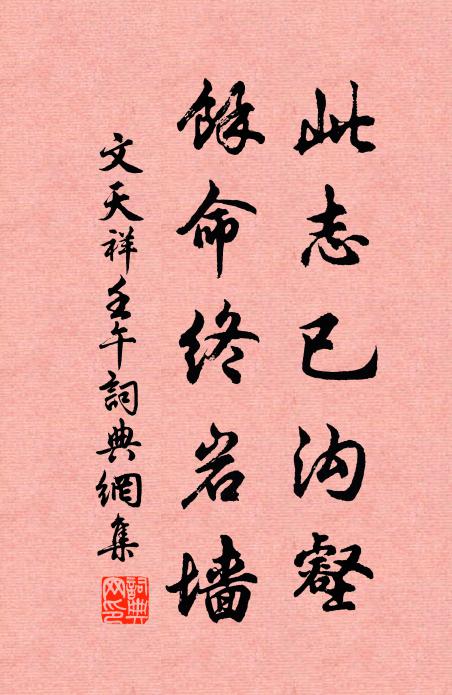 此志已沟壑
餘命终岩墙
文天祥壬午詞典網集
詞典网印